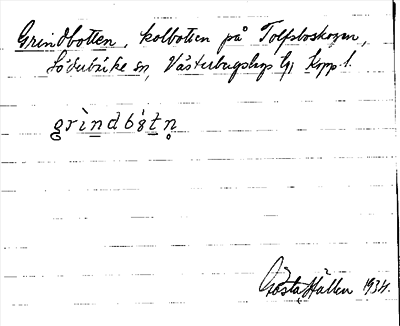 Grindbotten, kolbotten på Tolfsboskogen,
Söderbärke sn, Västerbergslags
grìndbòtn̥
Gösta Hallen 1934.